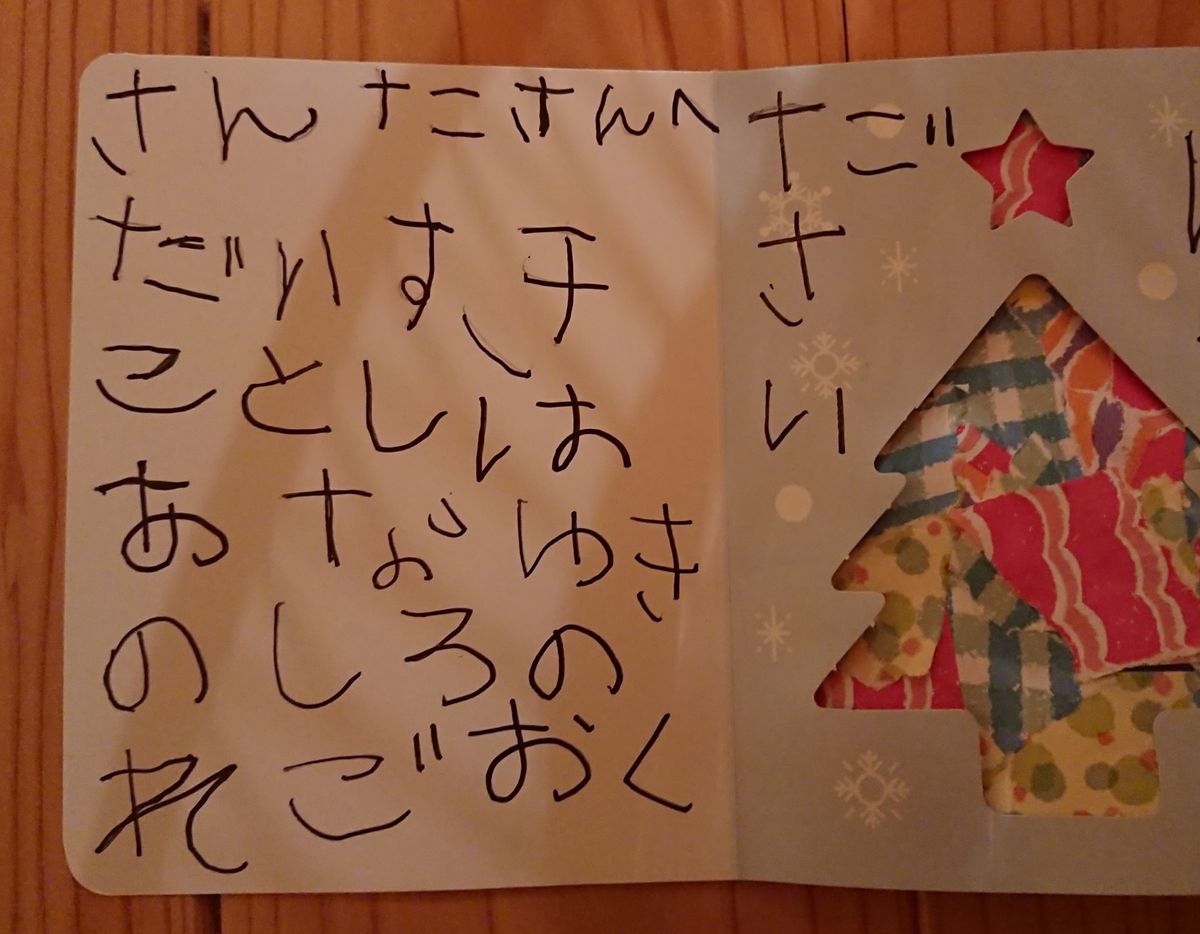 さんたさんへ
だいすき
ことしは
あなゆき
のしろの
れごおく
だ
さ
い